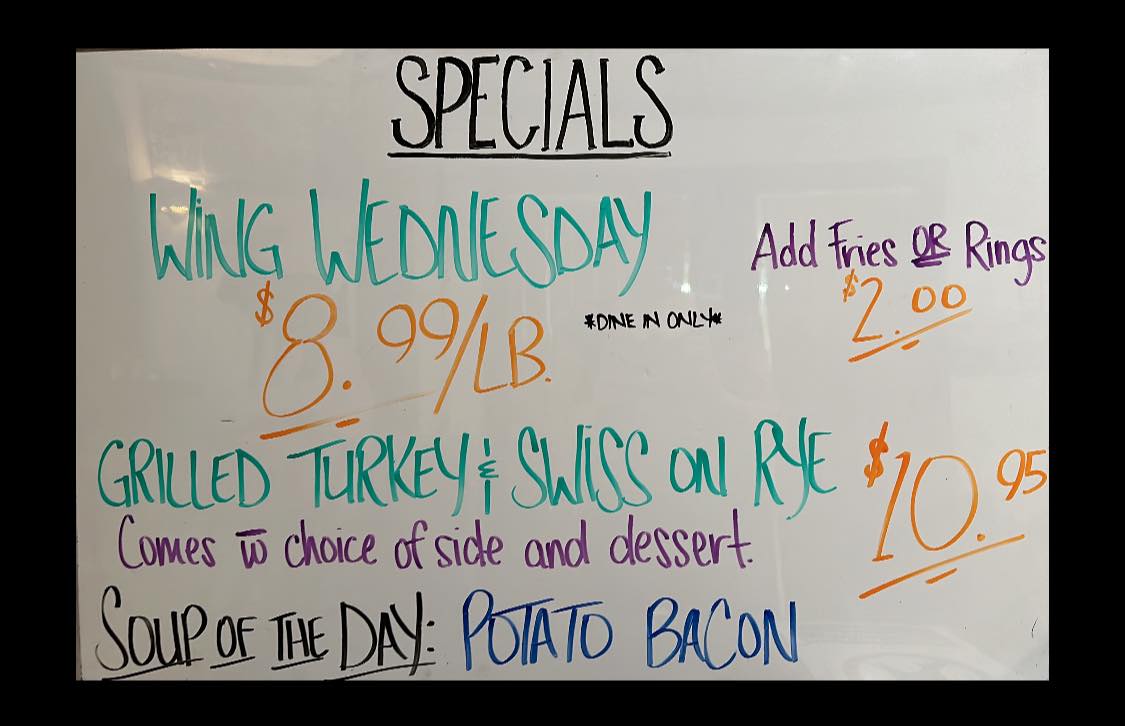 SPECIALS
WING WEDNESDAY
$8.99/LB.
*DINE IN ONLY*
Add Fries OR Rings
$2.00
GRILLED TURKEY & SWISS ON RYE $10.95
Comes w̅ choice of side and dessert.
SOUP OF THE DAY: POTATO BACON